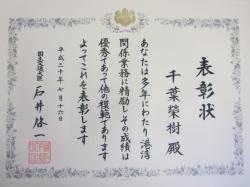 表彰状
千葉榮樹 殿
あなたは多年にわたり港湾
関係業務に精励しその成績は
優秀であって他の模範であります
よってこれを表彰します
平成三十年七月十六日
国土交通大臣 石井啓一